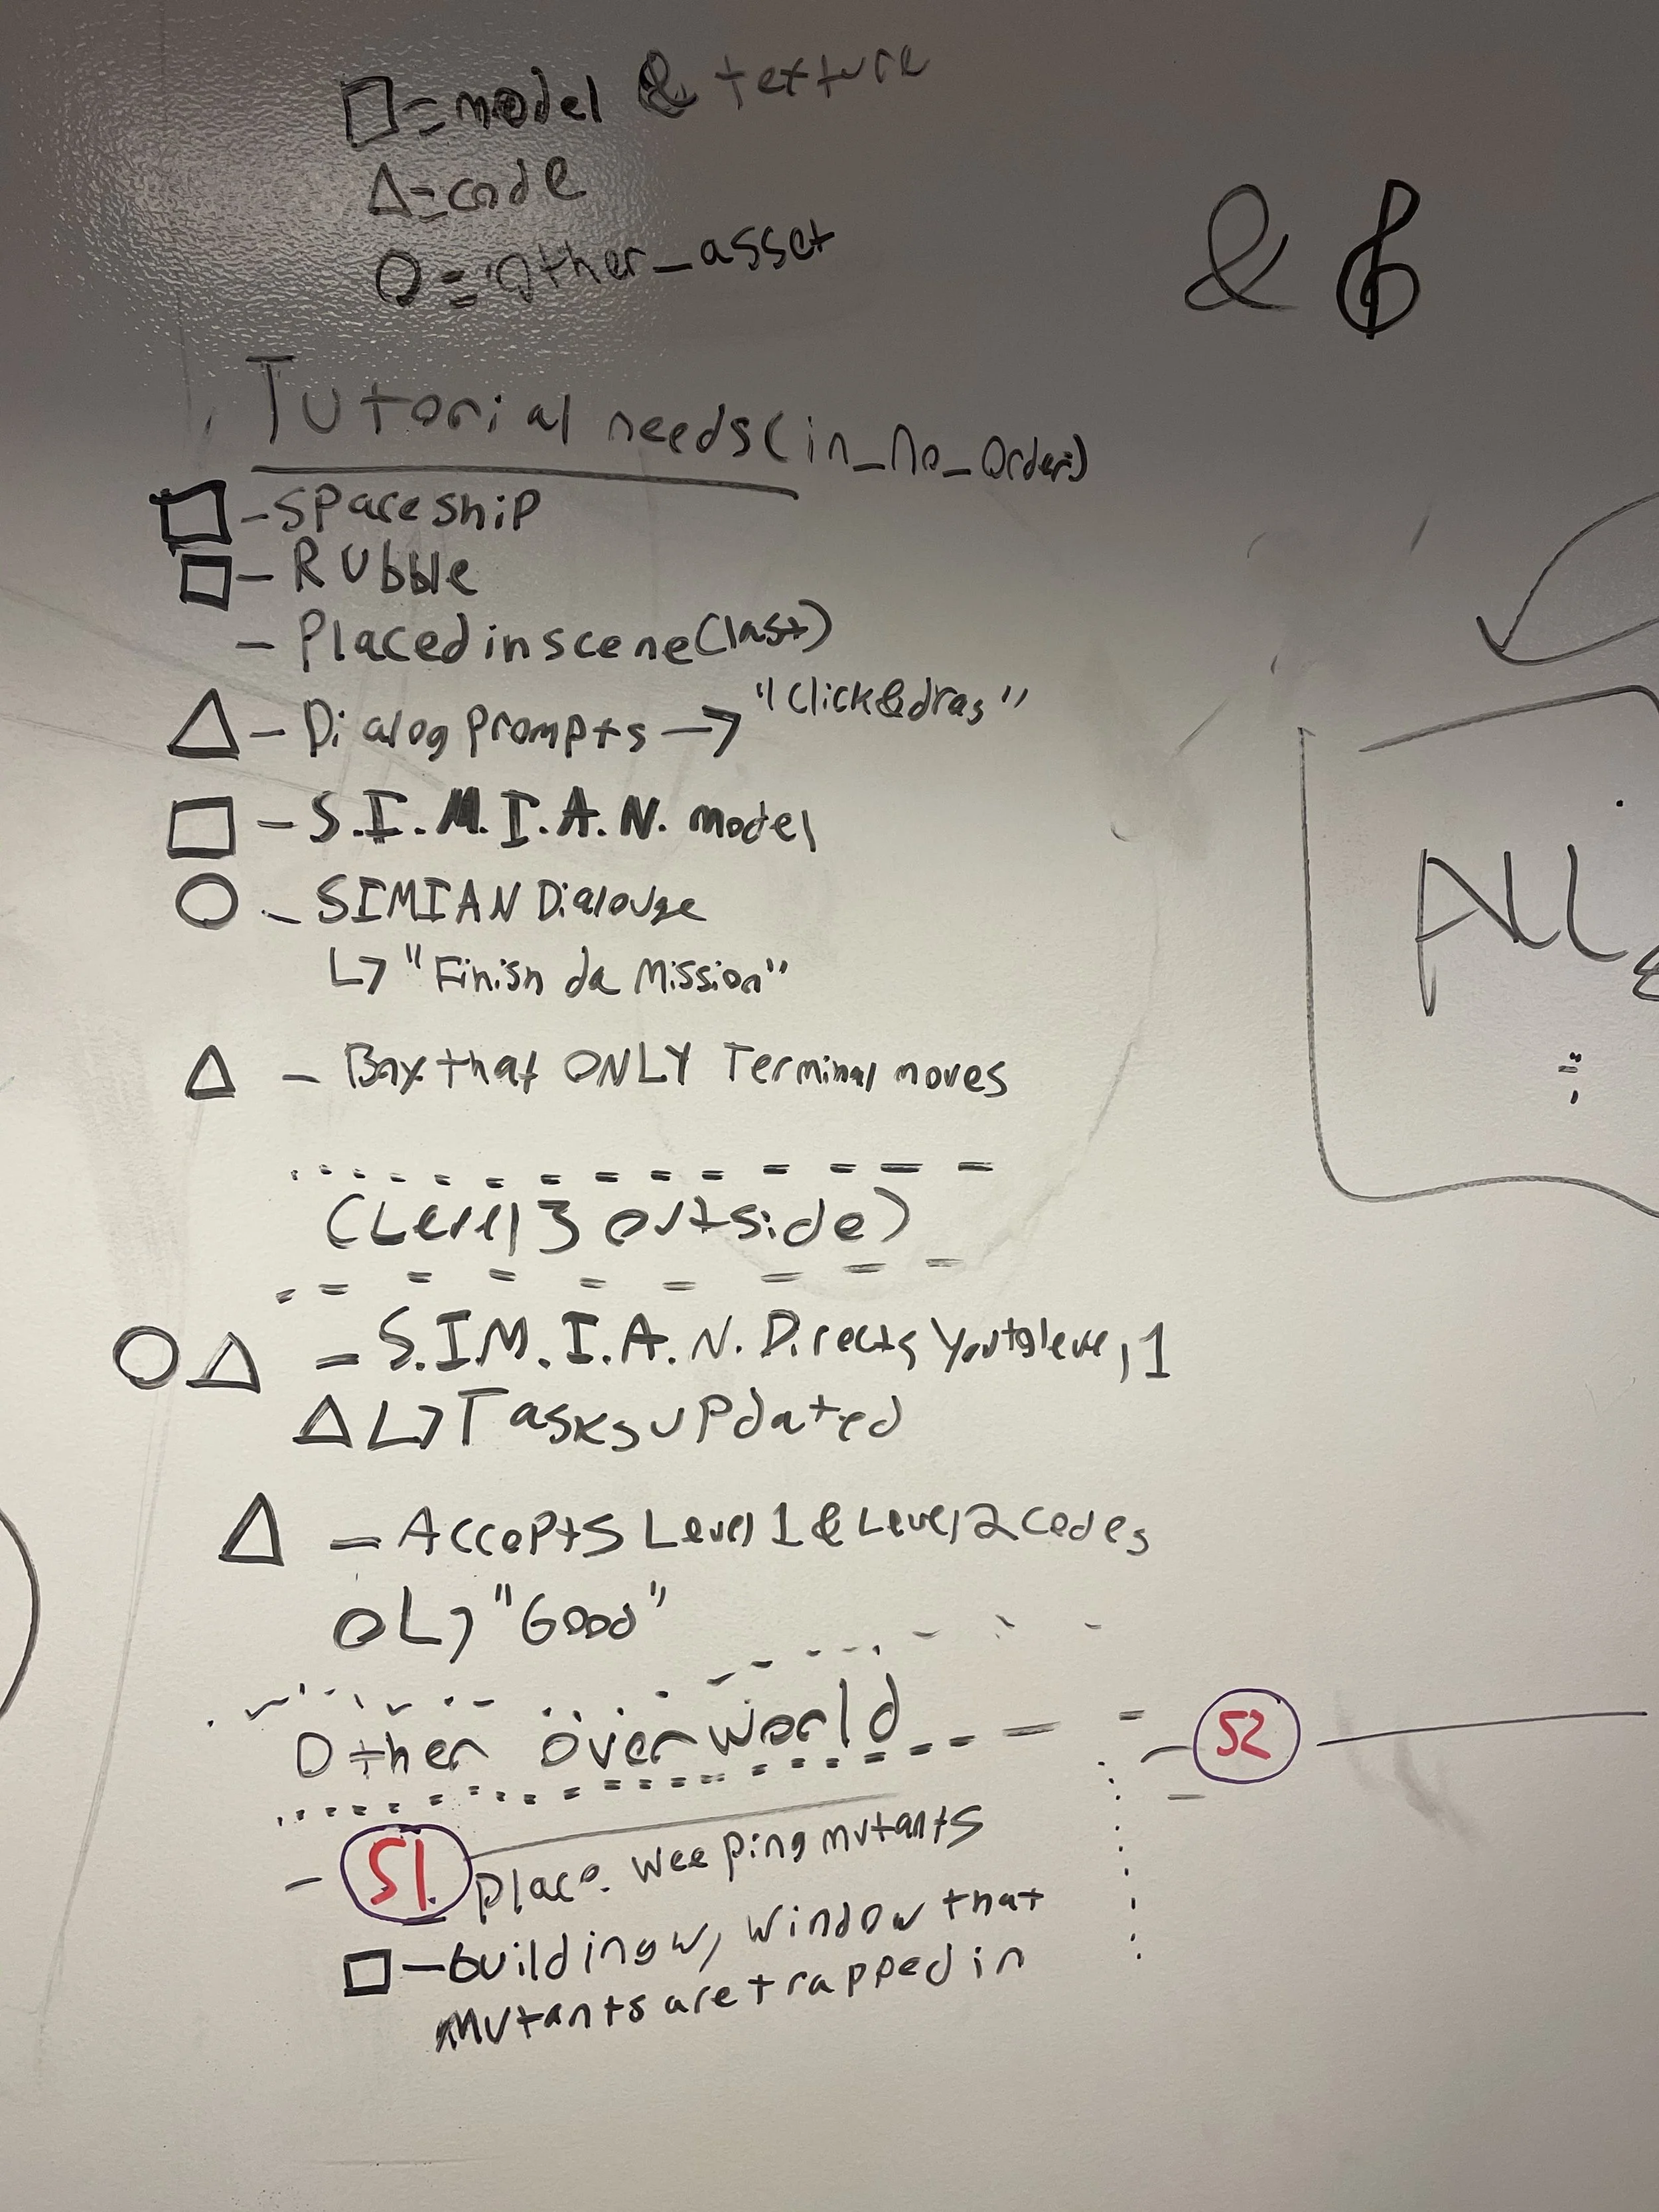 □=model & texture
△=code
○=Other_asset
& 
Tutorial needs(in_no_order)
□-Spaceship
□-Rubble
-Placed in scene(last)
△-Dialog prompts→"Click&drag"
□-S.I.M.I.A.N. model
○-SIMIAN Dialouge
↳"Finish da Mission"
△-Box that ONLY Terminal moves
(Level 3 outside)
○△=S.I.M.I.A.N. Directs you to level 1
△↳Tasks updated
△=Accepts Level 1 & Level 2 codes
○↳"Good"
Other overworld
-S1
-S2
place weeping mutants
□-building w/ window that
mutants are trapped in